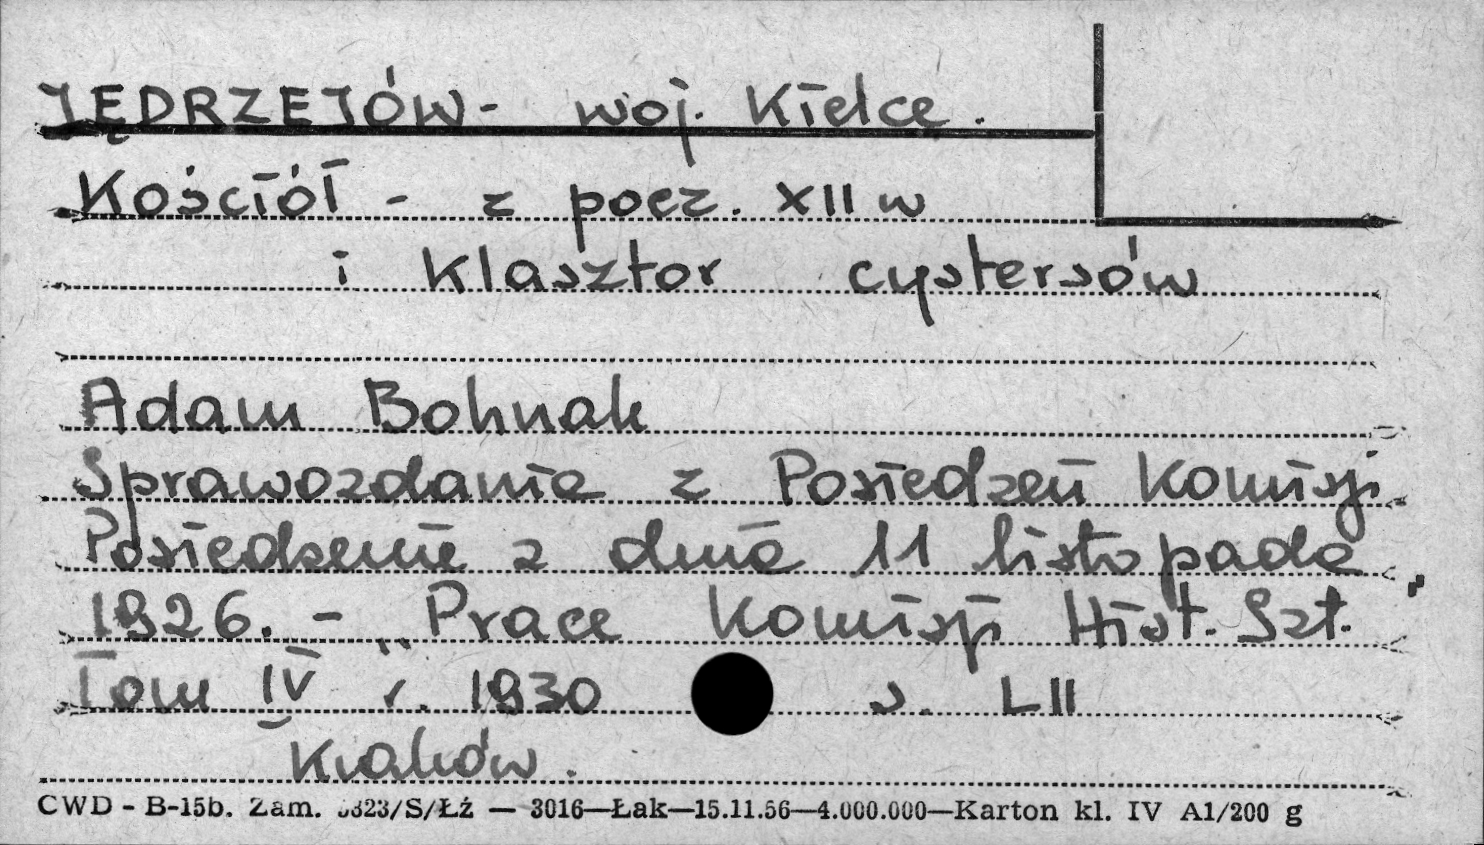 JĘDRZEJÓW - woj. Kielce.
Kościół - z pocz. XII w
i klasztor cystersów
Adam Bohnak
Sprawozdanie z Posiedzeń Komisji.
Posiedzenie z dnia 11 listopada
1926. - „Prace Komisji Hist. Szt.”
Tom IV r. 1930 s. LII
Kraków.
CWD - B-15b. Zam. 323/S/Łź — 3016—Łak—15.11.56—4.000.000—Karton kl. IV A1/200 g